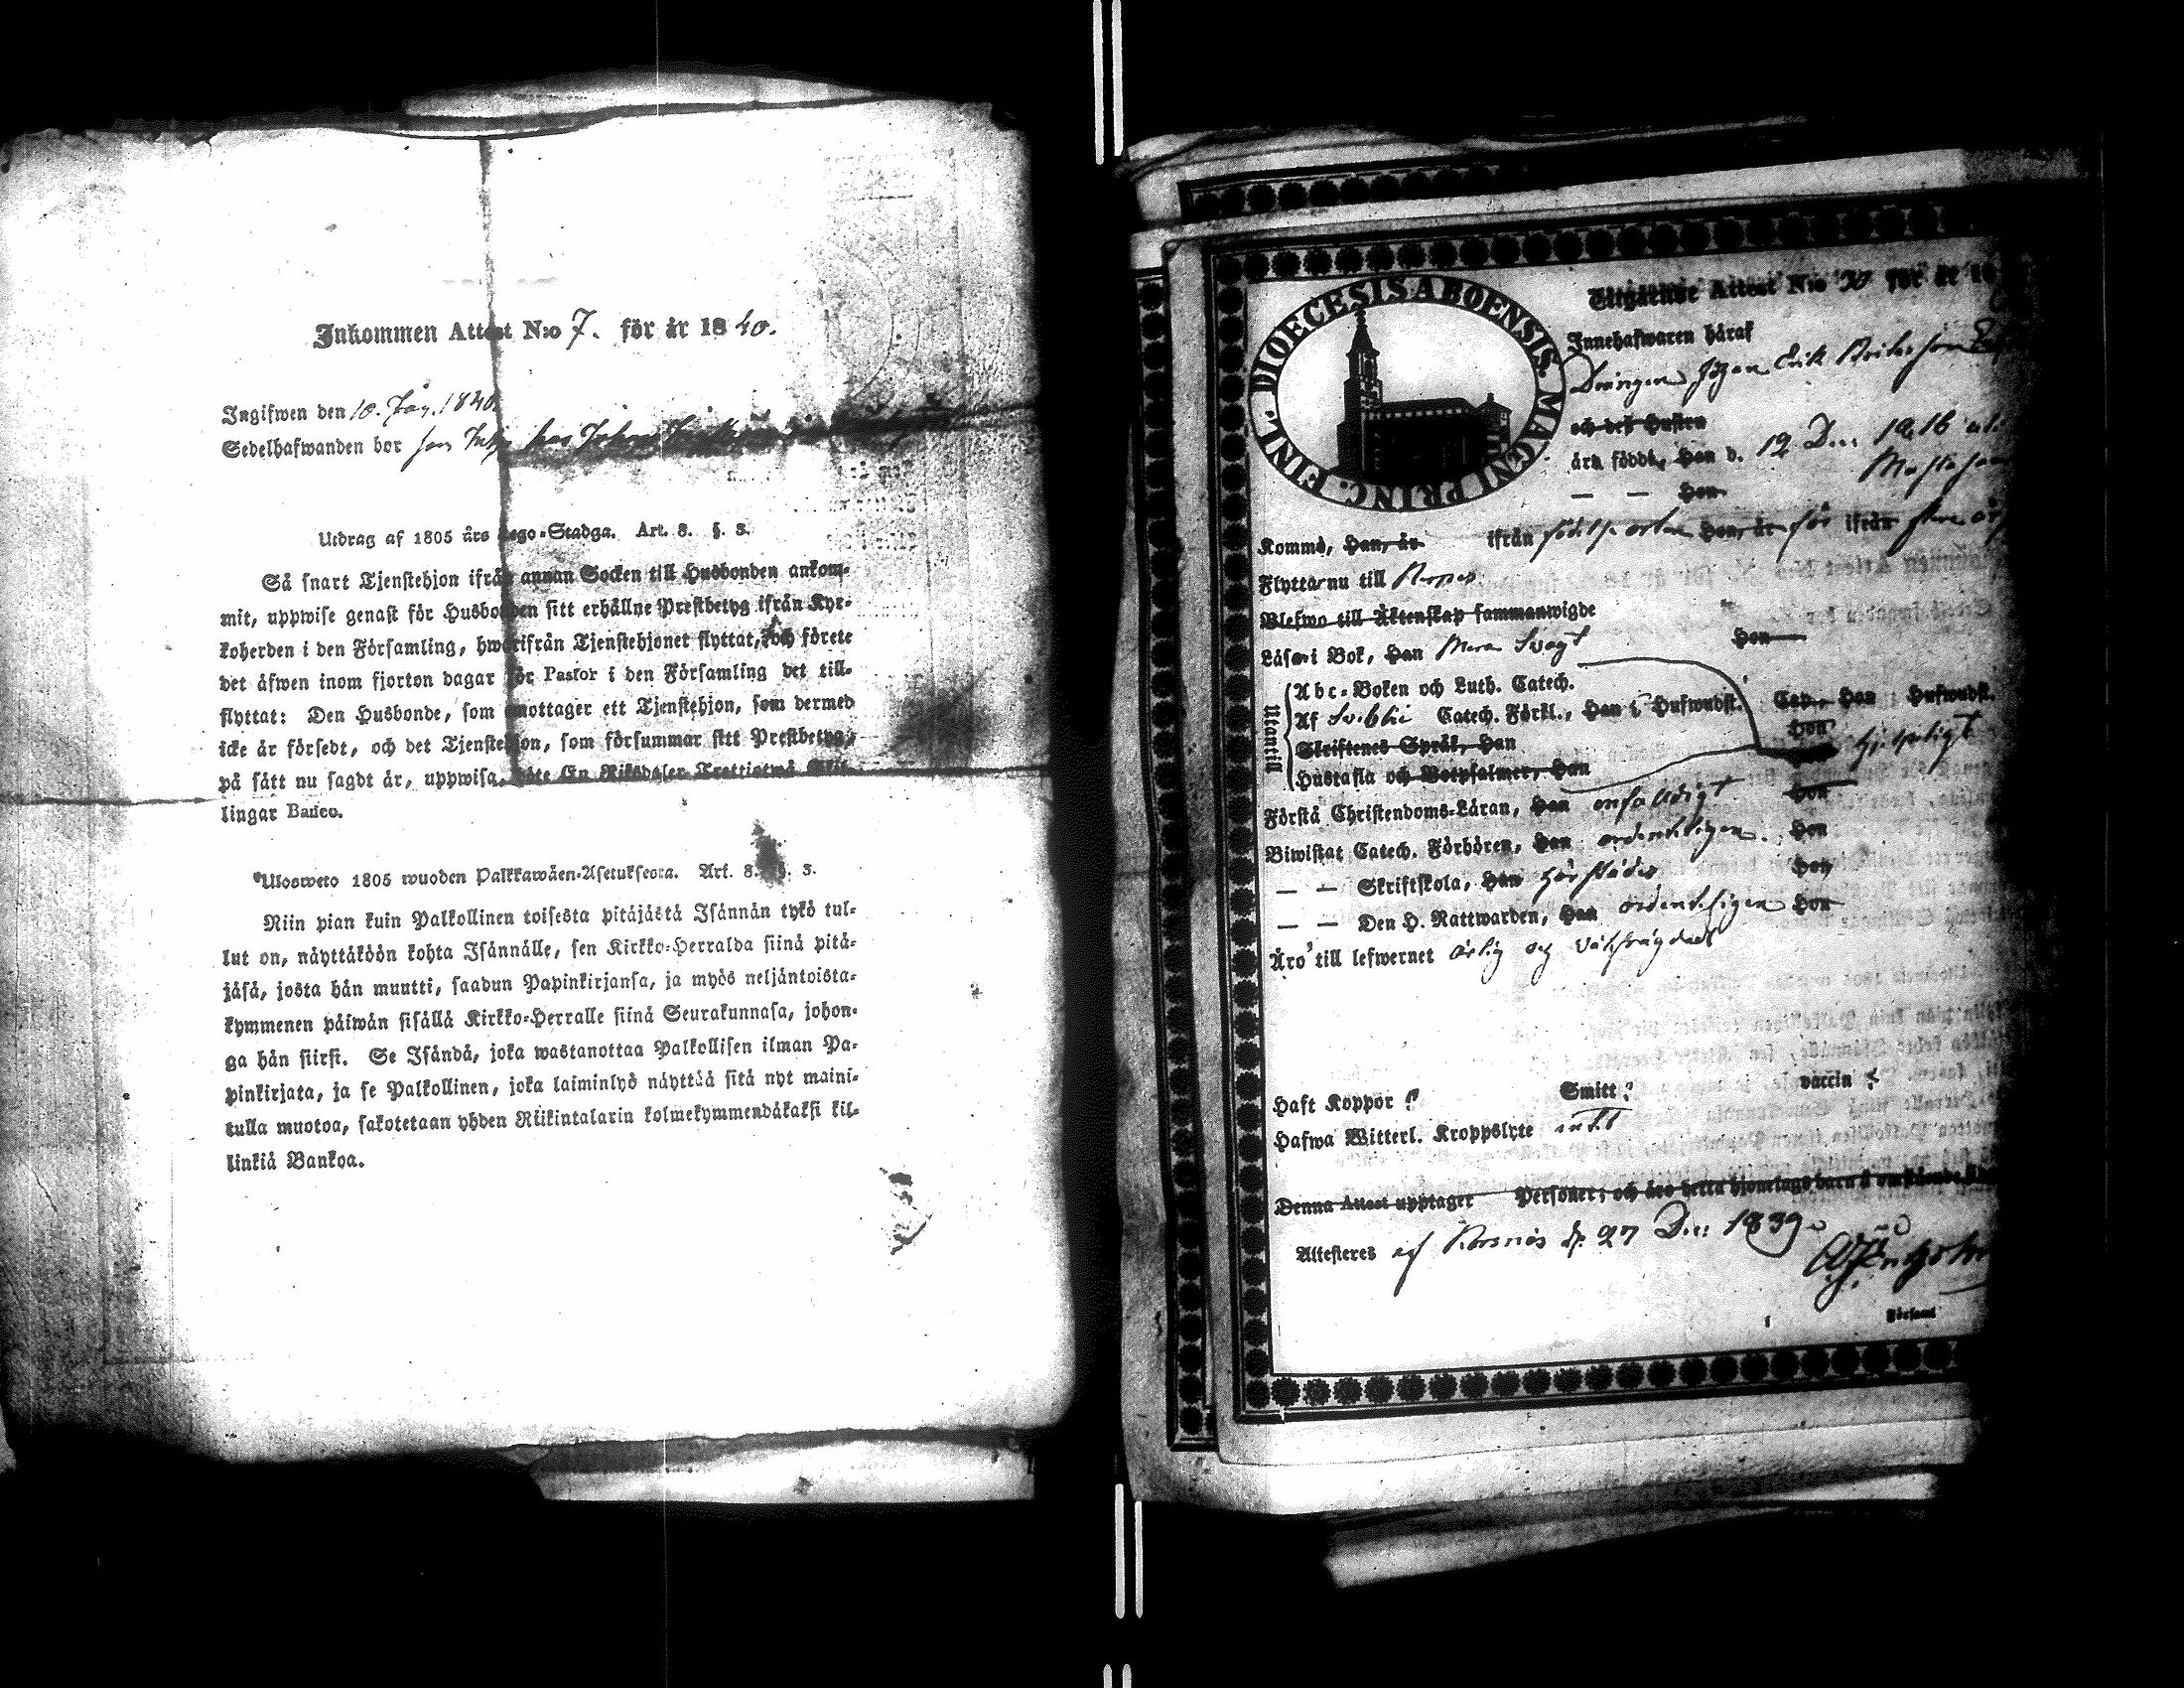 Inkommen Attest N:o 7. för år 1840.
Ingifwen den 10. Jan. 1840.
Sedelhafwanden bor
Utdrag af 1805 års Lego-Stadga. Art. 8. §. 3.
Så snart Tjenstehjon ifrån annan Socken till Husbonden ankom-
mit, uppwise genast för Husbonden sitt erhållne Prestbetyg ifrån Kyr-
koherden i den Församling, hwarifrån Tjenstehjonet flyttat, och förete
det äfwen inom fjorton dagar för Pastor i den Församling det till-
flyttat: Den Husbonde, som emottager ett Tjenstehjon, som dermed
icke är försedt, och det Tjenstehjon, som försummar sitt Prestbetyg,
på sätt nu sagdt är, uppwisa, böte En Riksdaler Trettiotwå Skil-
lingar Banco.
Ulosweto 1805 wuoden Palkkawäen-Asetuksesta. Art. 8. §. 3.
Niin pian kuin Palkollinen toisesta pitäjästä Isännän tykö tul-
lut on, näyttäköön kohta Isännälle, sen Kirkko-Herralda siinä pitä-
jäsä, josta hän muutti, saadun Papinkirjansa, ja myös neljäntoista-
kymmenen päiwän sisällä Kirkko-Herralle siinä Seurakunnasa, johon-
ga hän siirsi. Se Isändä, joka wastanottaa Palkollisen ilman Pa-
pinkirjata, ja se Palkollinen, joka laiminlyö näyttää sitä nyt maini-
tulla muotoa, sakotetaan yhden Riikintalarin kolmekymmendäkaksi kil-
linkiä Bankoa.
FINL. DIOECESIS ABOENSIS. MAGNI PRINC.
Utgående Attest N:o 30 för år 18
Innehafwaren häraf
Drängen Johan Erik
och deß Hustru
äro födde, Han d. 12 Dec: 1816
— — Hon
Komme, Han, år ifrån födelse orten Hon, år ifrån
Flytta nu till
Blefwo till Äktenskap sammanwigde
Läsa i Bok, Han Hon
Utantill
Abc-Boken och Luth. Catech.
Af Svebilii Catech. Förkl., Han Hufwudst. Cap., Han Hufwudst.
Skriftenes Språk, Han Hon
Hustafla och Botpsalmer, Han hjelpligt
Förstå Christendoms-Läran, Han enfaldigt Hon
Biwistat Catech. Förhören, Han ordenteligen. Hon
— — Skriftskola, Han härstädes Hon
— — Den H. Nattwarden, Han ordenteligen Hon
Äro till lefwernet ärlig och välfrägdad
Haft Koppor ? Smitt ? vaccin ?
Hafwa Witterl. Kroppslyte intet
Denna Attest upptager Personer; och äro detta hjonelags barn å omstående
Attesteres af d. 27 Dec: 1839.
Församl